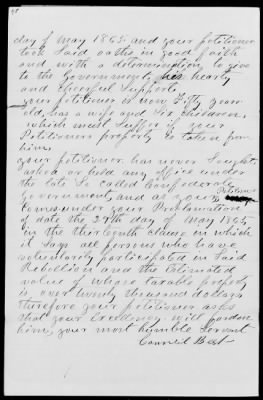 day of May 1865 and your petitioner
took said oaths in good faith
and with a determination to give
to the Government his hearty
and cheerful support.
your petitioner is now Fifty years
old, has a wife and Six children
which must suffer if your
Petitioners property is taken from
him.
your petitioner has never Sought,
asked or held any office under
the late So called Confederate
Government, and as your petitioner
comes under your Proclamation
of date the 29th day of May 1865,
in the thirteenth clause in which
it Says all persons who have
voluntarily participated in Said
Rebellion and the Estimated
value of whose taxable property
is over twenty thousand dollars
therefore your petitioner asks
that your Excellency will pardon
him, your most humble Servant
Council Best